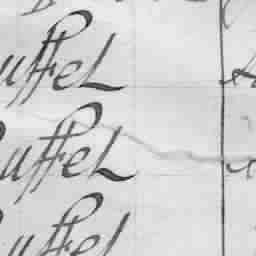 uffel
uffel
uffel